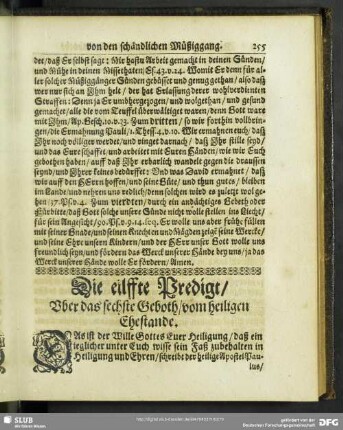 von den schändlichen Müßiggang. 255
det/ daß Er selbst sagt: Mir hastu Arbeit gemacht in deinen Sünden/
und Mühe in deinen Missethaten Es. 43. v. 24. Womit Er denn für al-
ler solcher Müßiggänger Sünden gebüsset und genug gethan/ also daß
wer nur sich an Ihm helt/ der hat Erlassung derer wohlverdienten
Straffen: Denn ja Er umbhergezogen/ und wolgethan/ und gesund
gemachet/ alle die vom Teuffel überwältiget waren/ denn Gott ware
mit Ihm/ Ap. Gesch. 10. v. 23. Zum dritten/ so wir forthin vollbrin-
gen/ die Ermahnung Pauli/ 1. Thess. 4. v. 10. Wir ermahnen euch/ daß
Ihr noch völliger werdet/ und ringet darnach/ daß Ihr stille seyd/
und das Eure schaffet/ und arbeitet mit Euren Händen/ wie wir Euch
gebothen haben/ auff daß Ihr erbarlich wandelt gegen die draussen
seynd/ und Ihrer keines bedürffet: Und was David ermahnet/ daß
wir auff den HErrn hoffen/ und seine Güte/ und thun gutes/ bleiben
im Lande/ und nehren uns redlich/ denn solchen wird es zuletzt wol ge-
hen/ 37. Ps. v. 4. Zum vierdten/ durch ein andächtiges Gebeth oder
Fürbitte/ daß Gott solche unsere Sünde nicht wolle stellen ins Liecht/
für sein Angesicht/ 90. Ps. v. 9. 14. seq. Er wolle uns aber frühe füllen
mit seiner Gnade/ und seinen Knechten und Mägden zeigt seine Wercke/
und seine Ehre unsern Kindern/ und der HErr unser Gott wolle uns
freundlich seyn/ und fördern das Werck unserer Hände bey uns/ ja das
Werck unserer Hände wolle Er fördern/ Amen.
Die eilffte Predigt/
Uber das sechste Geboth/ vom heiligen
Ehestande.
DAs ist der Wille Gottes Euer Heiligung/ daß ein
ieglicher unter Euch wisse sein Faß zubehalten in
Heiligung und Ehren/ schreibt der heilige Apostel Pau-
lus/
SLUB
Wir führen Wissen.
gefördert von der
DFG
Deutschen Forschungsgemeinschaft